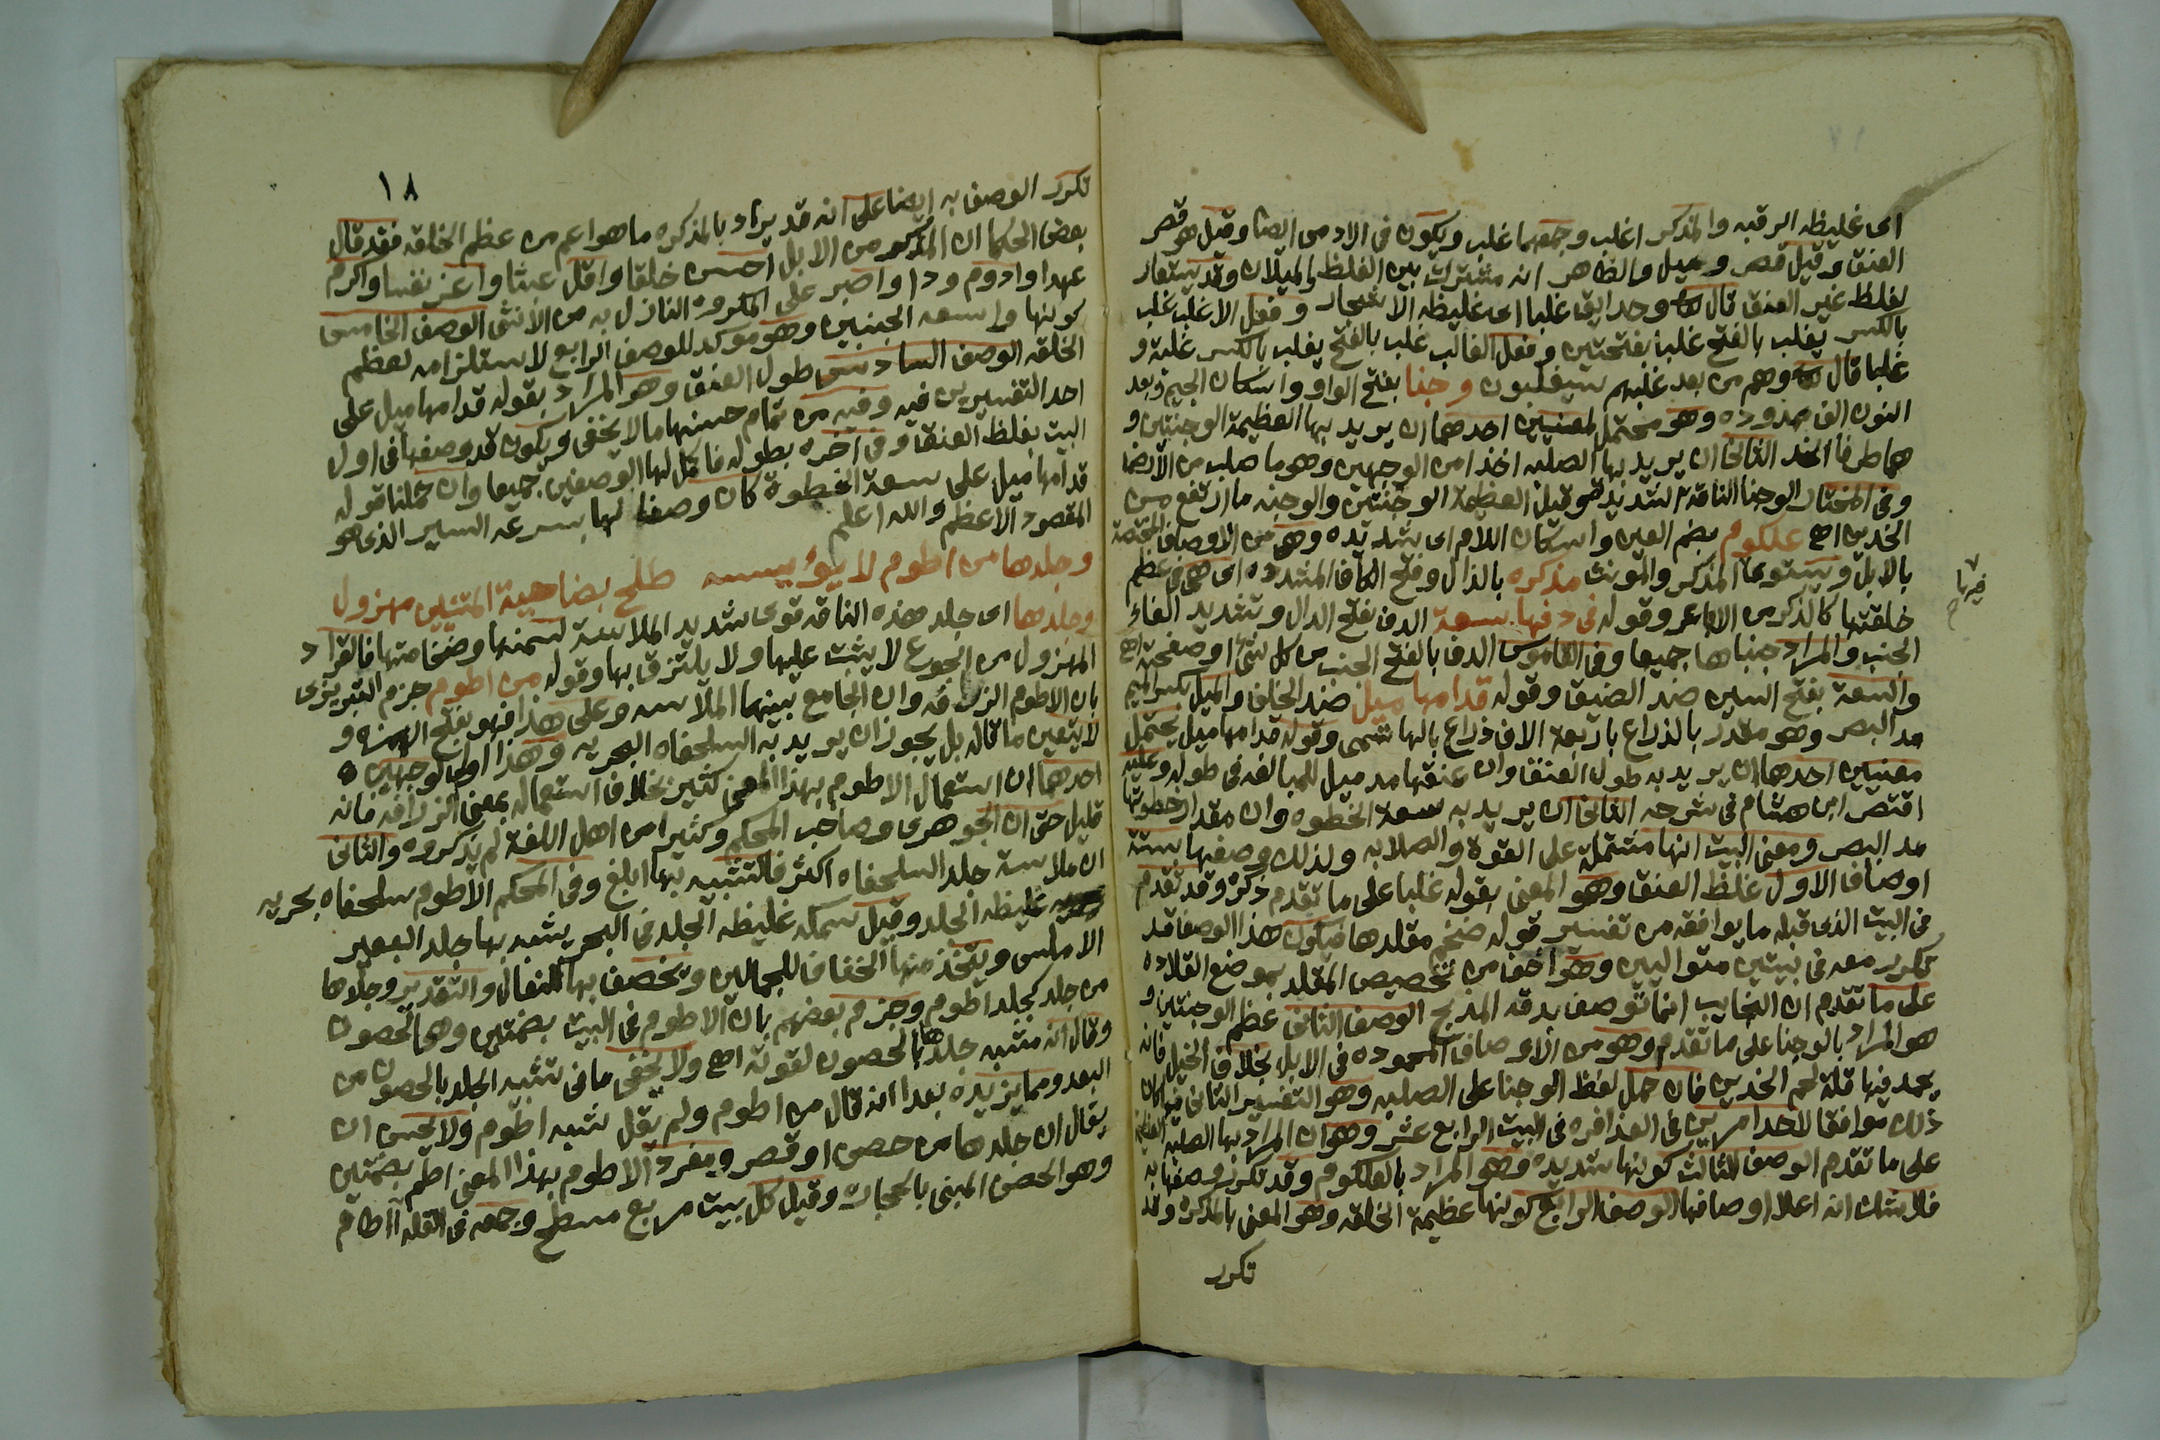 اى غليظه الرقبه والمذكر اغلب وجمعهما غلب ويكون فى الادمى ايضا وقيل هو قصر
العنق وقيل قصر وميل والظاهر انه مشترك بين الغلظ والميلان وقد يستعار
لغلظ غير العنق قال وحدايق غلبا اى غليظه الاشجار وفعل الاغلب غلب
بالكسر يغلب بالفتح غلبا بفتحتين وفعل الغالب غلب بالفتح يغلب بالكسر غلبة و
غلبا قال وهم من بعد غلبهم سيغلبون وجنا بفتح الواو واسكان الجيم وبعد
النون الف ممدوده وهو محتمل لمعنيين احدهما ان يريد بها العظيمة الوجنتين و
هما طرفا الخد الثانى ان يريد بها الصلبه اخذا من الوجين وهو ما صلب من الارض
وفى المختار الوجنا الناقة الشديدة وقيل العظيمة الوجنتين والوجنه ما ارتفع من
الخدين اهـ علكوم بضم العين واسكان اللام اى شديده وهى من الاوصاف المختصة
بالابل ويستوى فيها المذكر والمونث مذكره بالذال وفتح الكاف المشدده اى هى فى عظم
خلقتها كالذكر من الاباعر وقوله فى دفها سعة الدف بفتح الدال وتشديد الفاء
الجنب والمراد جنباها جميعا وفى القاموس الدف بالفتح الجنب من كل شئ او صفحته اهـ
والسعة بفتح السين ضد الضيق وقوله قدامها ميل ضد الخلف والميل بكسر الميم
مد البصر وهو مقدر بالذراع باربعة الاف ذراع بالهاشمى وقوله قدامها ميل يحتمل
معنيين احدهما ان يريد به طول العنق وان عنقها مد ميل للمبالغه فى طوله وعليه
اقتصر ابن هشام فى شرحه الثانى ان يريد به سعة الخطوه وان مقدار خطوتها
مد البصر ومعنى البيت انها مشتملة على القوة والصلابه ولذلك وصفها بستة
اوصاف الاول غلظ العنق وهو المعنى بقوله غلبا على ما تقدم ذكره وقد تقدم
فى البيت الذى قبله ما يوافقه من تفسير قوله ضخم مقلدها فيكون هذا الوصف قد
تكرر معه فى بيتين متواليين وهو اخف من تخصيص المقلد بموضع القلاده
على ما تقدم ان النجايب انما توصف بدقه المذبح الوصف الثانى عظم الوجنتين و
هو المراد بالوجنا على ما تقدم وهو من الاوصاف المحموده فى الابل بخلاف الخيل فانه
يحمد فيها قلة لحم الخدين فان حمل لفظ الوجنا على الصلبه وهو التفسير الثانى فيها كان
ذلك موافقا لاحد امرين فى العذافره فى البيت الرابع عشر وهو ان المراد بها الصلبه العظيمة
على ما تقدم الوصف الثالث كونها شديده وهو المراد بالعلكوم وقد تكرر وصفها به
فلا شك انه اعلا اوصافها الوصف الرابع كونها عظيمة الخلقه وهو المعنى بالمذكره وقد
تكرر
فيها صح
١٨
تكرر الوصف به ايضا على انه قد يراد بالمذكره ما هو اعم من عظم الخلقه فقد قال
بعض الحكما ان المذكر من الابل احسن خلقا واقل عبثا واعز نفسا واكرم
عهدا وادوم ودا واصبر على المكروه النازل به من الأنثى الوصف الخامس
كونها واسعه الجنبين وهو موكد للوصف الرابع لاستلزامه لعظم
الخلقه الوصف السادس طول العنق وهو المراد بقوله قدامها ميل على
احد التفسيرين فيه وفيه من تمام حسنها ما لا يخفى ويكون قد وصفها فى اول
البيت بغلظ العنق وفى اخره بطوله فاكمل لها الوصفين جميعا وان حملنا قوله
قدامها ميل على سعة الخطوة كان وصفا لها بسرعه السير الذى هو
المقصود الاعظم والله اعلم
وجلدها من اطوم لا يؤيسه طلح بضاحية المتنين مهزول
وجلدها اى جلد هذه الناقه قوى شديد الملاسة لسمنها وضخامتها فالقراد
المهزول من الجوع لا يثبت عليها ولا يلتزق بها وقوله من اطوم جزم التبريزى
بان الاطوم الزرافه وان الجامع بينهما الملاسه وعلى هذا فهو بفتح الهمزه و
لا يتعين ما قاله بل يجوز ان يريد به السلحفاه البحريه وهذا اولى لوجهين
احدهما ان استعمال الاطوم بهذا المعنى كثير بخلاف استعماله بمعنى الزرافه فانه
قليل حتى ان الجوهرى وصاحب المحكم وكثيرا من اهل اللغة لم يذكروه والثانى
ان ملاسة جلد السلحفاه اكثر فالتشبيه بها ابلغ وفى المحكم الاطوم سلحفاه بحريه
غليظه الجلد وقيل سمكه غليظه الجلد فى البحر يشبه بها جلد البعير
الاملس ويتخذ منها الخفاف للجمالين ويخصف بها النعال والتقدير وجلدها
من جلد كجلد اطوم وجزم بعضهم بان الاطوم فى البيت بضمتين وهى الحصون
وقال انه مشبه جلدها بالحصون لقوته اهـ ولا يخفى ما فى تشبيه الجلد بالحصون من
البعد ومما يزيده بعدا انه قال من اطوم ولم يقل شبه اطوم ولا يحسن ان
يقال ان جلدها من حصن او قصر ومفرد الاطوم بهذا المعنى اطم بضمتين
وهو الحصن المبنى بالحجاره وقيل كل بيت مربع مسطح وجمعه فى القله آاطام